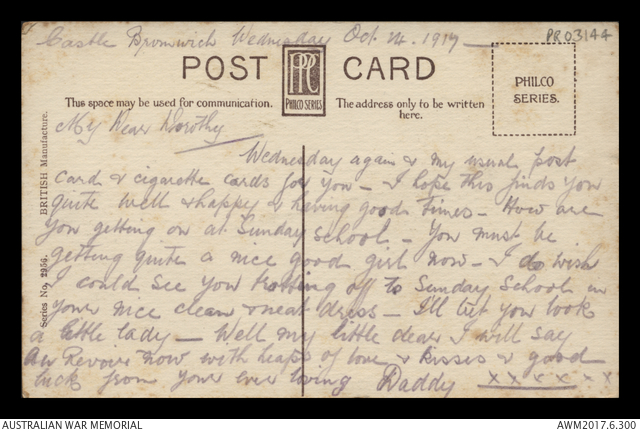 Castle Bromwich Wednesday Oct 24. 1917
PR03144
POST CARD
PHILCO SERIES
PHILCO
SERIES.
This space may be used for communication.
The address only to be written
here.
BRITISH Manufacture.
Series No. 2954.
My Dear Dorothy
Wednesday again & my usual post
card & cigarette cards for you – I hope this finds you
quite well & happy & having good times – How are
you getting on at Sunday School. – You must be
getting quite a nice good girl now – I do wish
I could see you trotting off to Sunday School in
your nice clean & neat dress – I'll bet you look
a little lady – Well my little dear I will say
Au Revoir now with heaps of love & kisses & good
luck from your ever loving Daddy x x x x x x
AUSTRALIAN WAR MEMORIAL
AWM2017.6.300